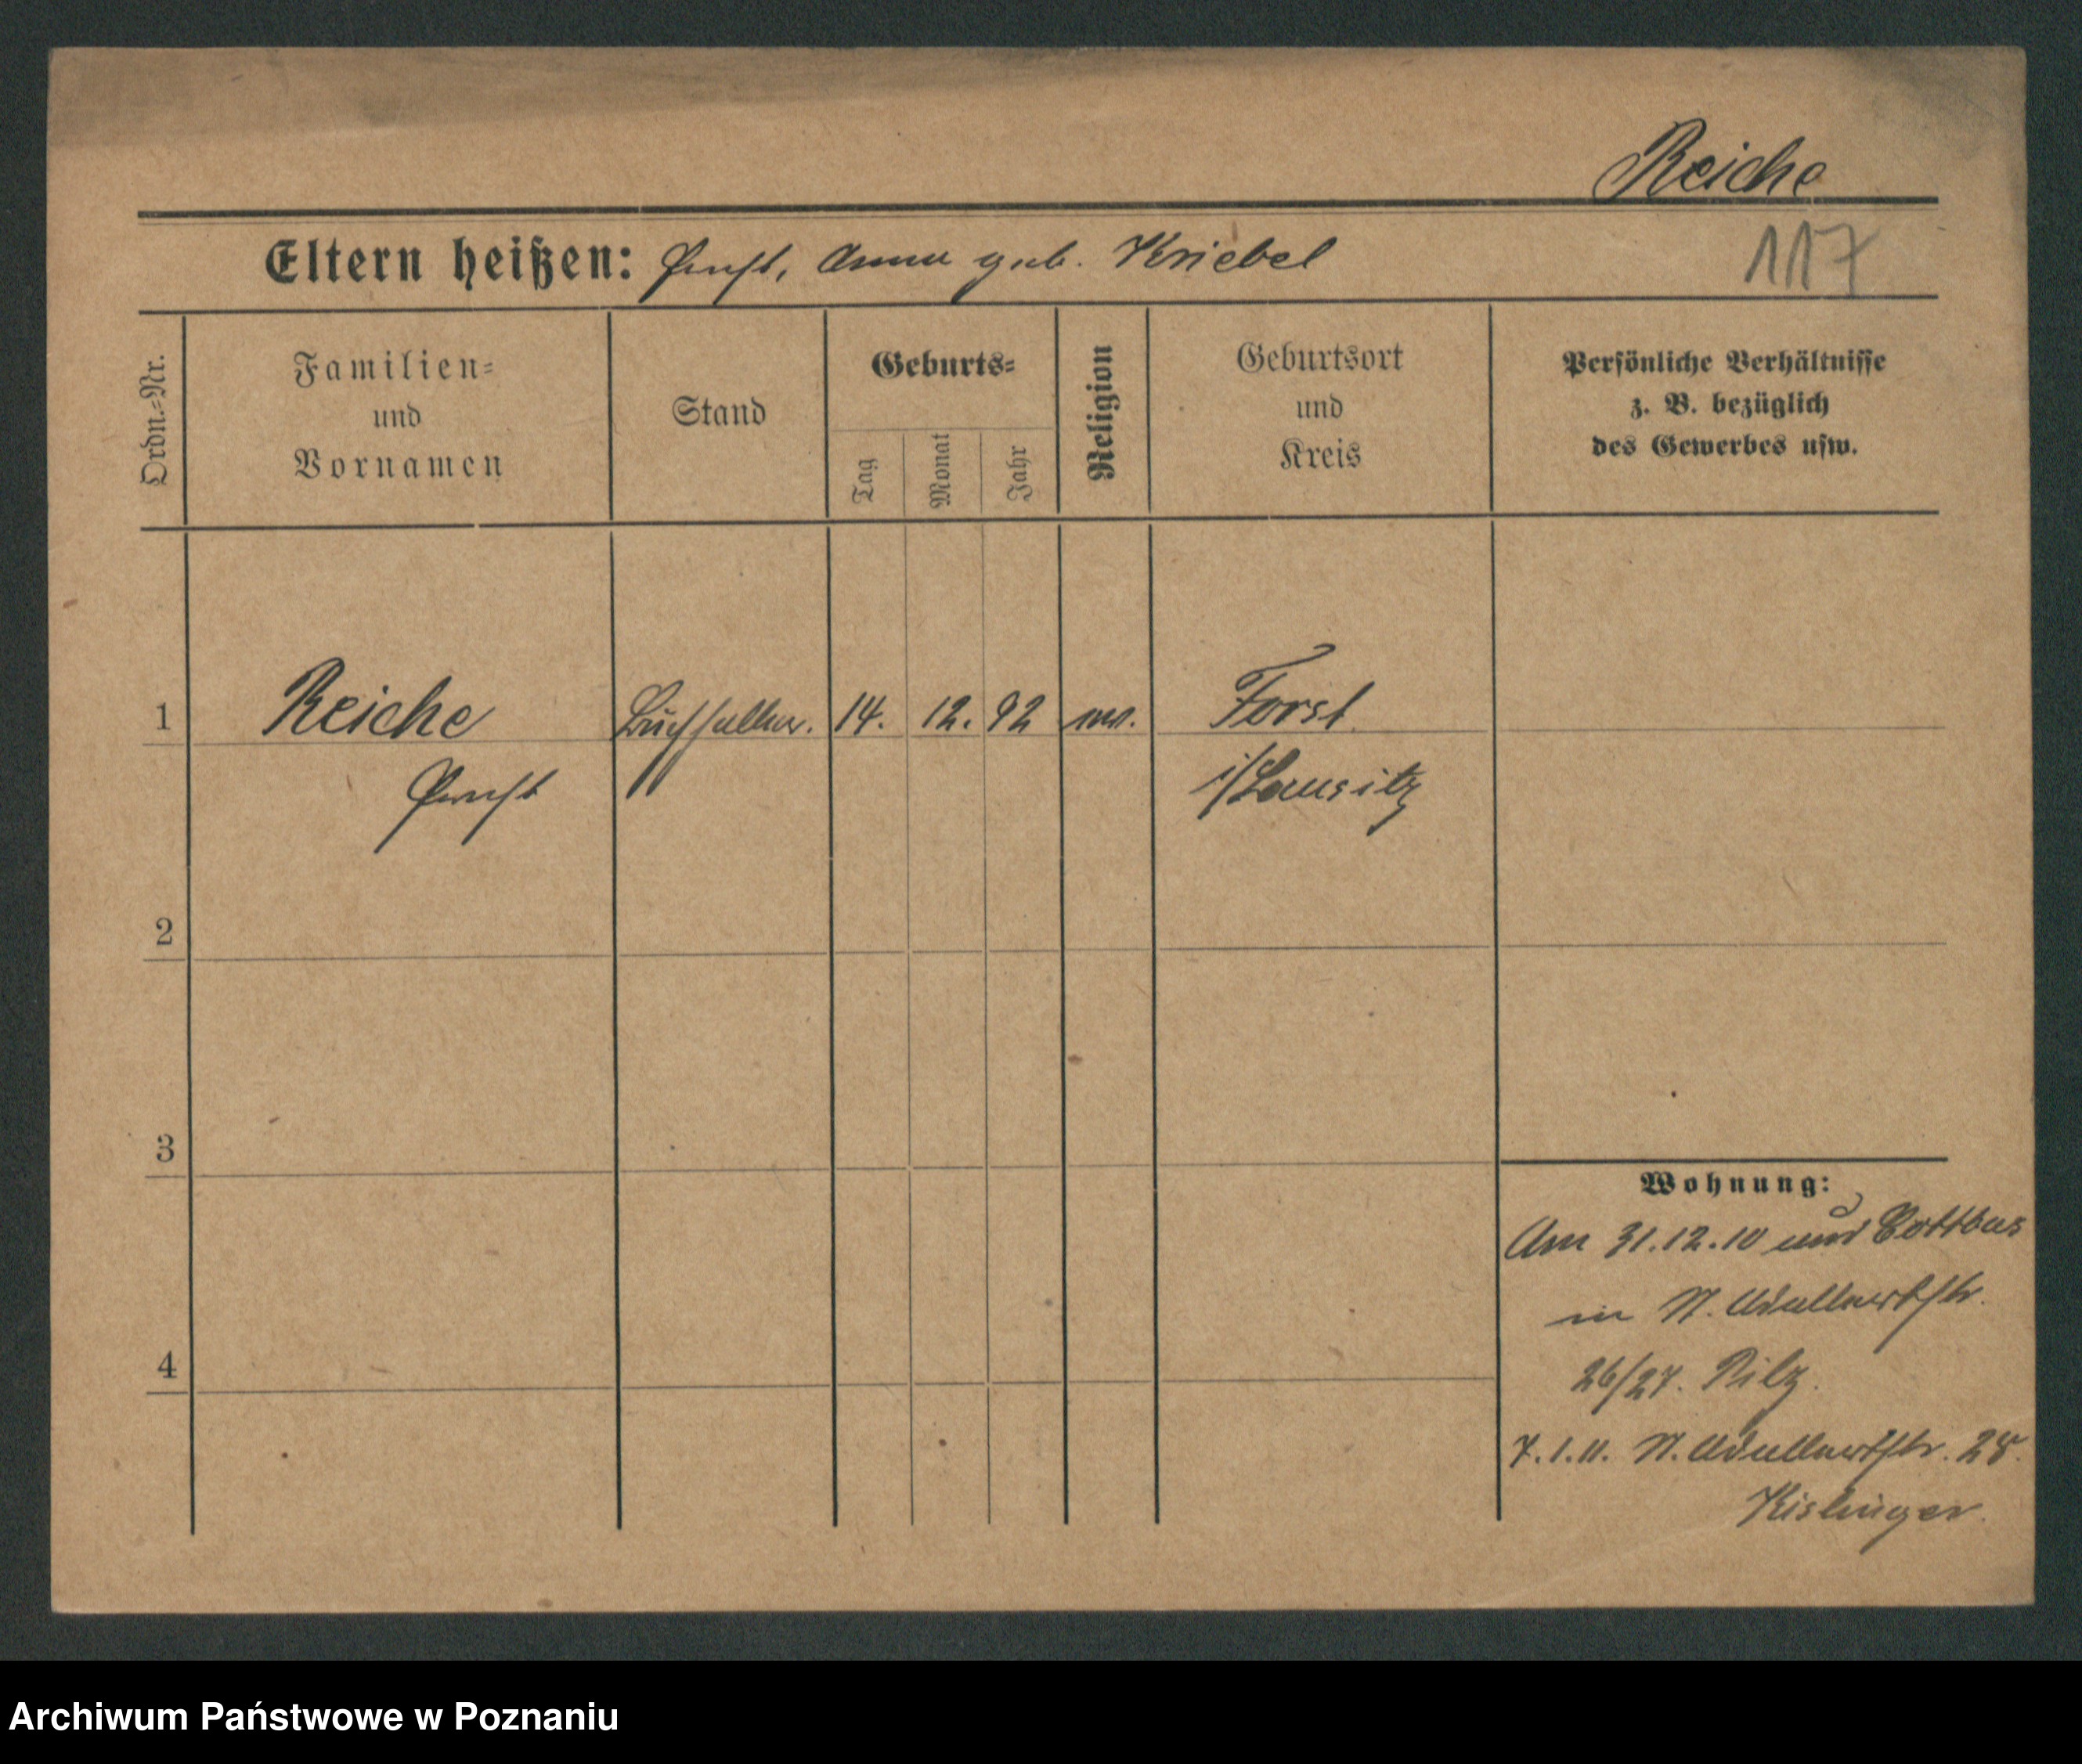 Reiche
Eltern heißen: Ernst, Anna geb. Kriebel
117
Ordn.=Nr.
Familien=
und
Vornamen
Stand
Geburts=
Tag
Monat
Jahr
Religion
Geburtsort
und
Kreis
Persönliche Verhältnisse
z. B. bezüglich
des Gewerbes usw.
1 Reiche Buchhalter. 14. 12. 92 ev. Forst
Ernst i/Lausitz
2
3
4
Wohnung:
Am 31.12.10 aus Cottbus
in N. Adalbertstr.
26/27. Pilz.
7.1.11. N. Adalbertstr. 28.
Kislinger.
Archiwum Państwowe w Poznaniu